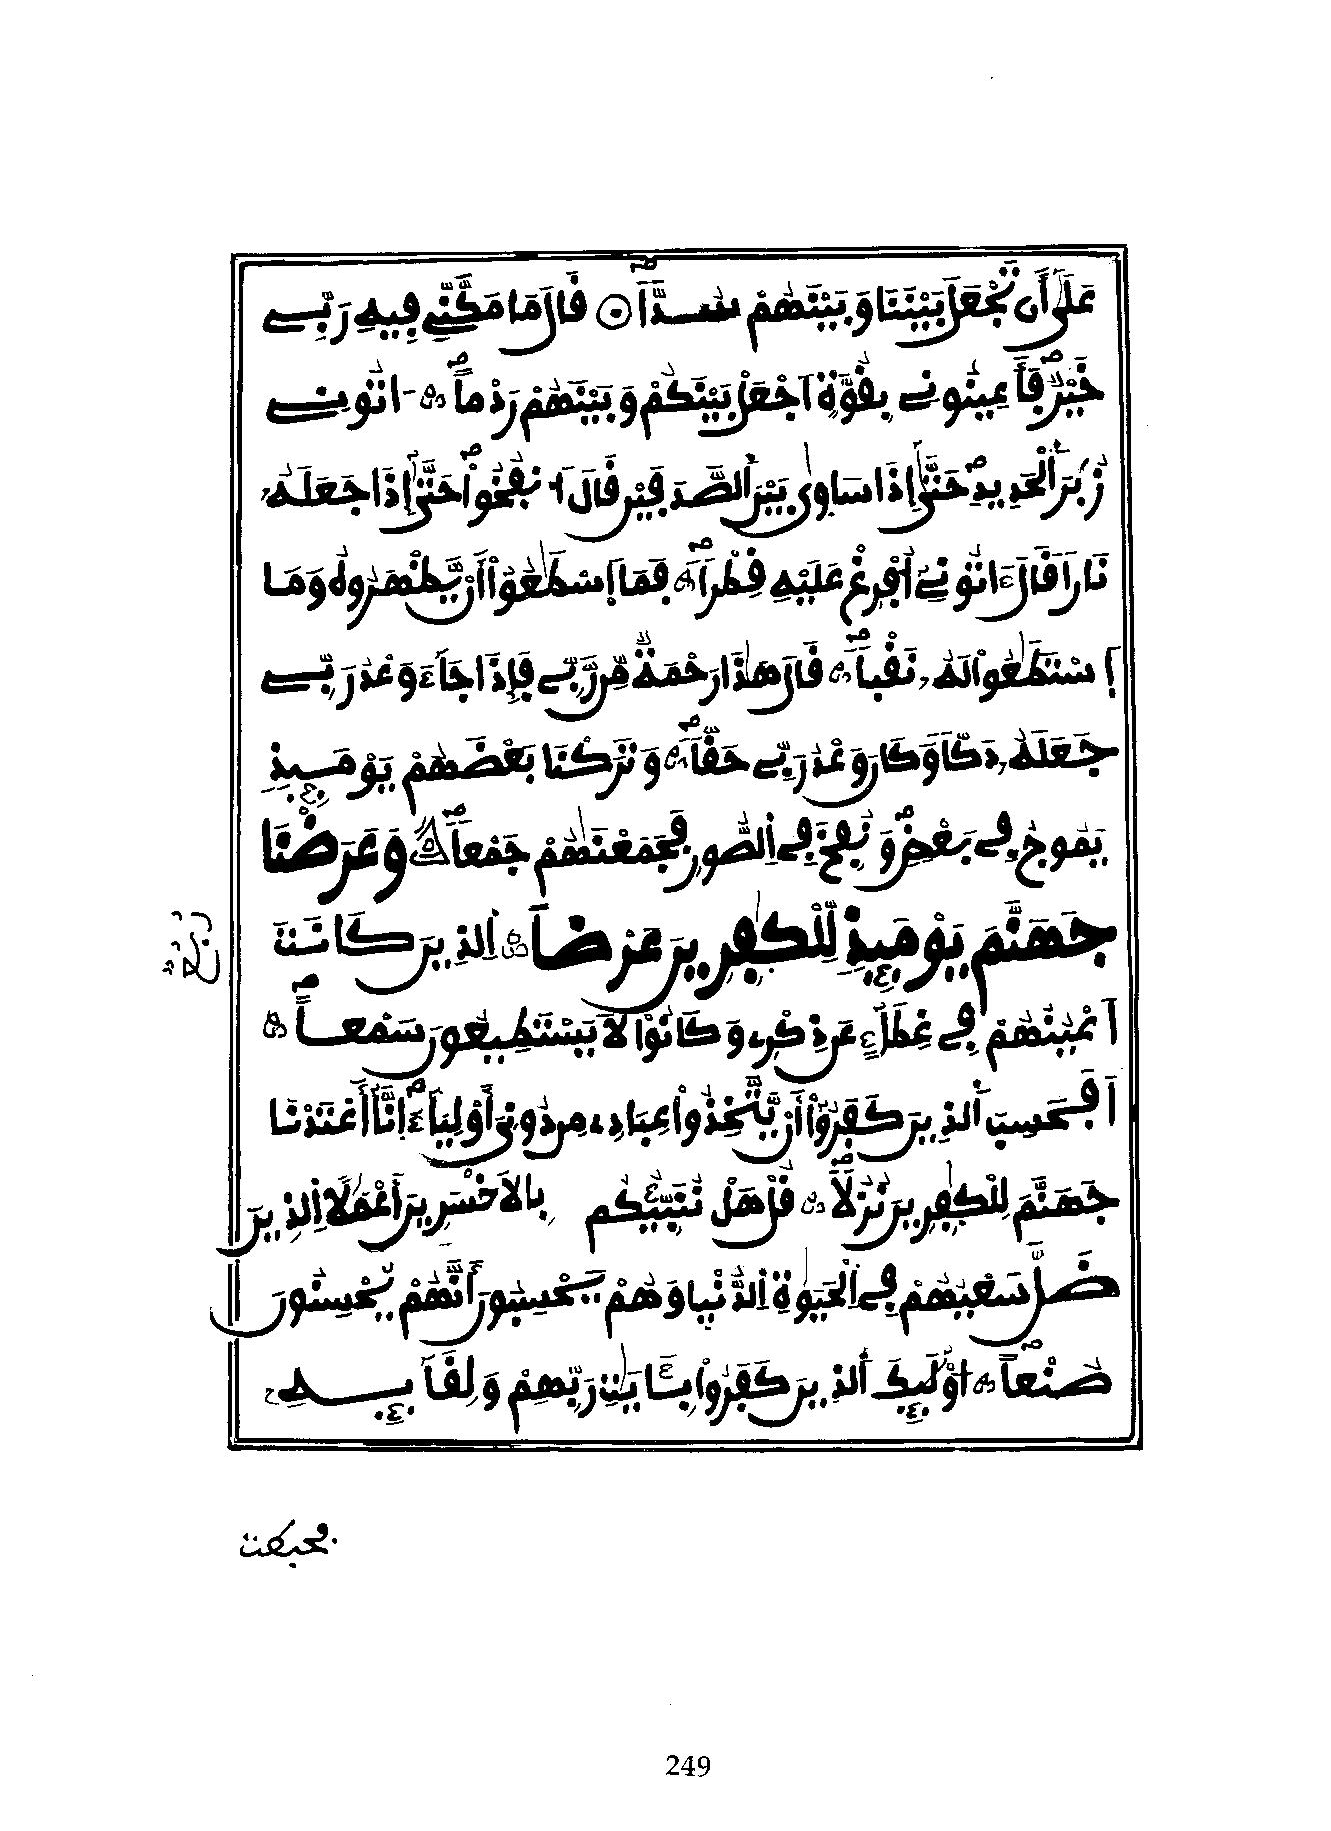 عَلَىٰ أَن تَجْعَلَ بَيْنَنَا وَبَيْنَهُمْ سُدّاً ۝ قَالَ مَا مَكَّنِّے فِيهِ رَبِّے
خَيْرٌ فَأَعِينُونِے بِقُوَّةٍ اَجْعَلْ بَيْنَكُمْ وَبَيْنَهُمْ رَدْماً ۝ اتُونِے
زُبَرَ اَلْحَدِيدِ حَتَّىٰ إِذَا سَاوىٰ بَيْنَ اَلصَّدَفَيْنِ قَالَ اَنفُخُواْ حَتَّىٰ إِذَا جَعَلَهُۥ
نَاراً قَالَ ءَاتُونِےٓ أُفْرِغْ عَلَيْهِ قِطْراً ۝ فَمَا اَسْطَٰعُوٓاْ أَنْ يَّظْهَرُوهُ وَمَا
اَسْتَطَٰعُواْ لَهُۥ نَقْباً ۝ قَالَ هَٰذَا رَحْمَةٌ مِّن رَّبِّے فَإِذَا جَآءَ وَعْدُ رَبِّے
جَعَلَهُۥ دَكّاً وَكَانَ وَعْدُ رَبِّے حَقّاً ۝ وَتَرَكْنَا بَعْضَهُمْ يَوْمَئِذٍ
يَمُوجُ فِے بَعْضٍ وَنُفِخَ فِے اِلصُّورِ فَجَمَعْنَٰهُمْ جَمْعاً ۝ وَعَرَضْنَا
رُبُع
جَهَنَّمَ يَوْمَئِذٍ لِّلْكَٰفِرِينَ عَرْضاً ۝ اَلذِينَ كَانَتَ
اَعْيُنُهُمْ فِے غِطَآءٍ عَن ذِكْرِے وَكَانُواْ لاَ يَسْتَطِيعُونَ سَمْعاً ۝
اَفَحَسِبَ اَلذِينَ كَفَرُوٓاْ أَنْ يَّتَّخِذُواْ عِبَادِے مِن دُونِيَ أَوْلِيَآءَ اِنَّآ أَعْتَدْنَا
جَهَنَّمَ لِلْكَٰفِرِينَ نُزُلاً ۝ قُلْ هَلْ نُنَبِّئُكُم بِالاَخْسَرِينَ أَعْمَٰلاً اِلذِينَ
ضَلَّ سَعْيُهُمْ فِے اِلْحَيَوٰةِ اِلدُّنْيَا وَهُمْ يَحْسِبُونَ أَنَّهُمْ يُحْسِنُونَ
صُنْعاً ۝ اوْلَٰئِكَ اَلذِينَ كَفَرُواْ بِـَٔايَٰتِ رَبِّهِمْ وَلِقَآئِهِۦ
فحبطت
249